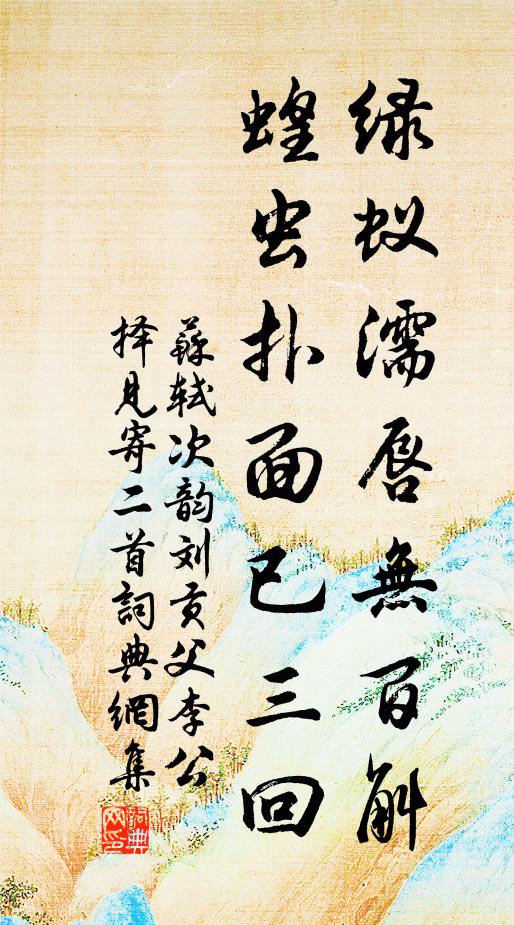 绿蚁濡唇無百斛
蝗虫扑面已三回
蘇轼次韵刘贡父李公
择見寄二首詞典網集
詞典網印